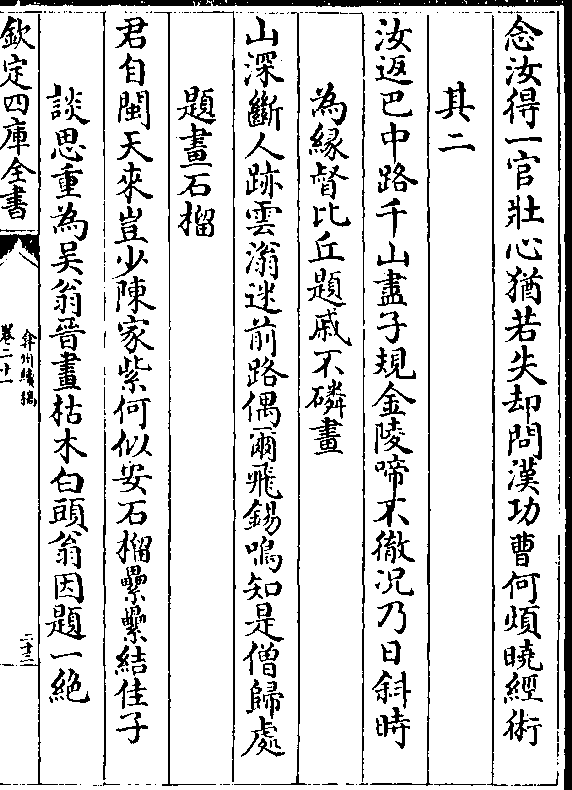 念汝得一官壯心猶若失却問漢功曹何煩曉經術
其二
汝返巴中路千山盡子規金陵啼不徹况乃日斜時
為緣督比丘題戚不磷畫
山深斷人跡雲滃迷前路偶爾飛錫鳴知是僧歸處
題畫石榴
君自閩天來豈少陳家紫何似安石榴纍纍結佳子
談思重為吴翁晉畫枯木白頭翁因題一絶
欽定四庫全書
弇州續稿
卷二十一
二十二